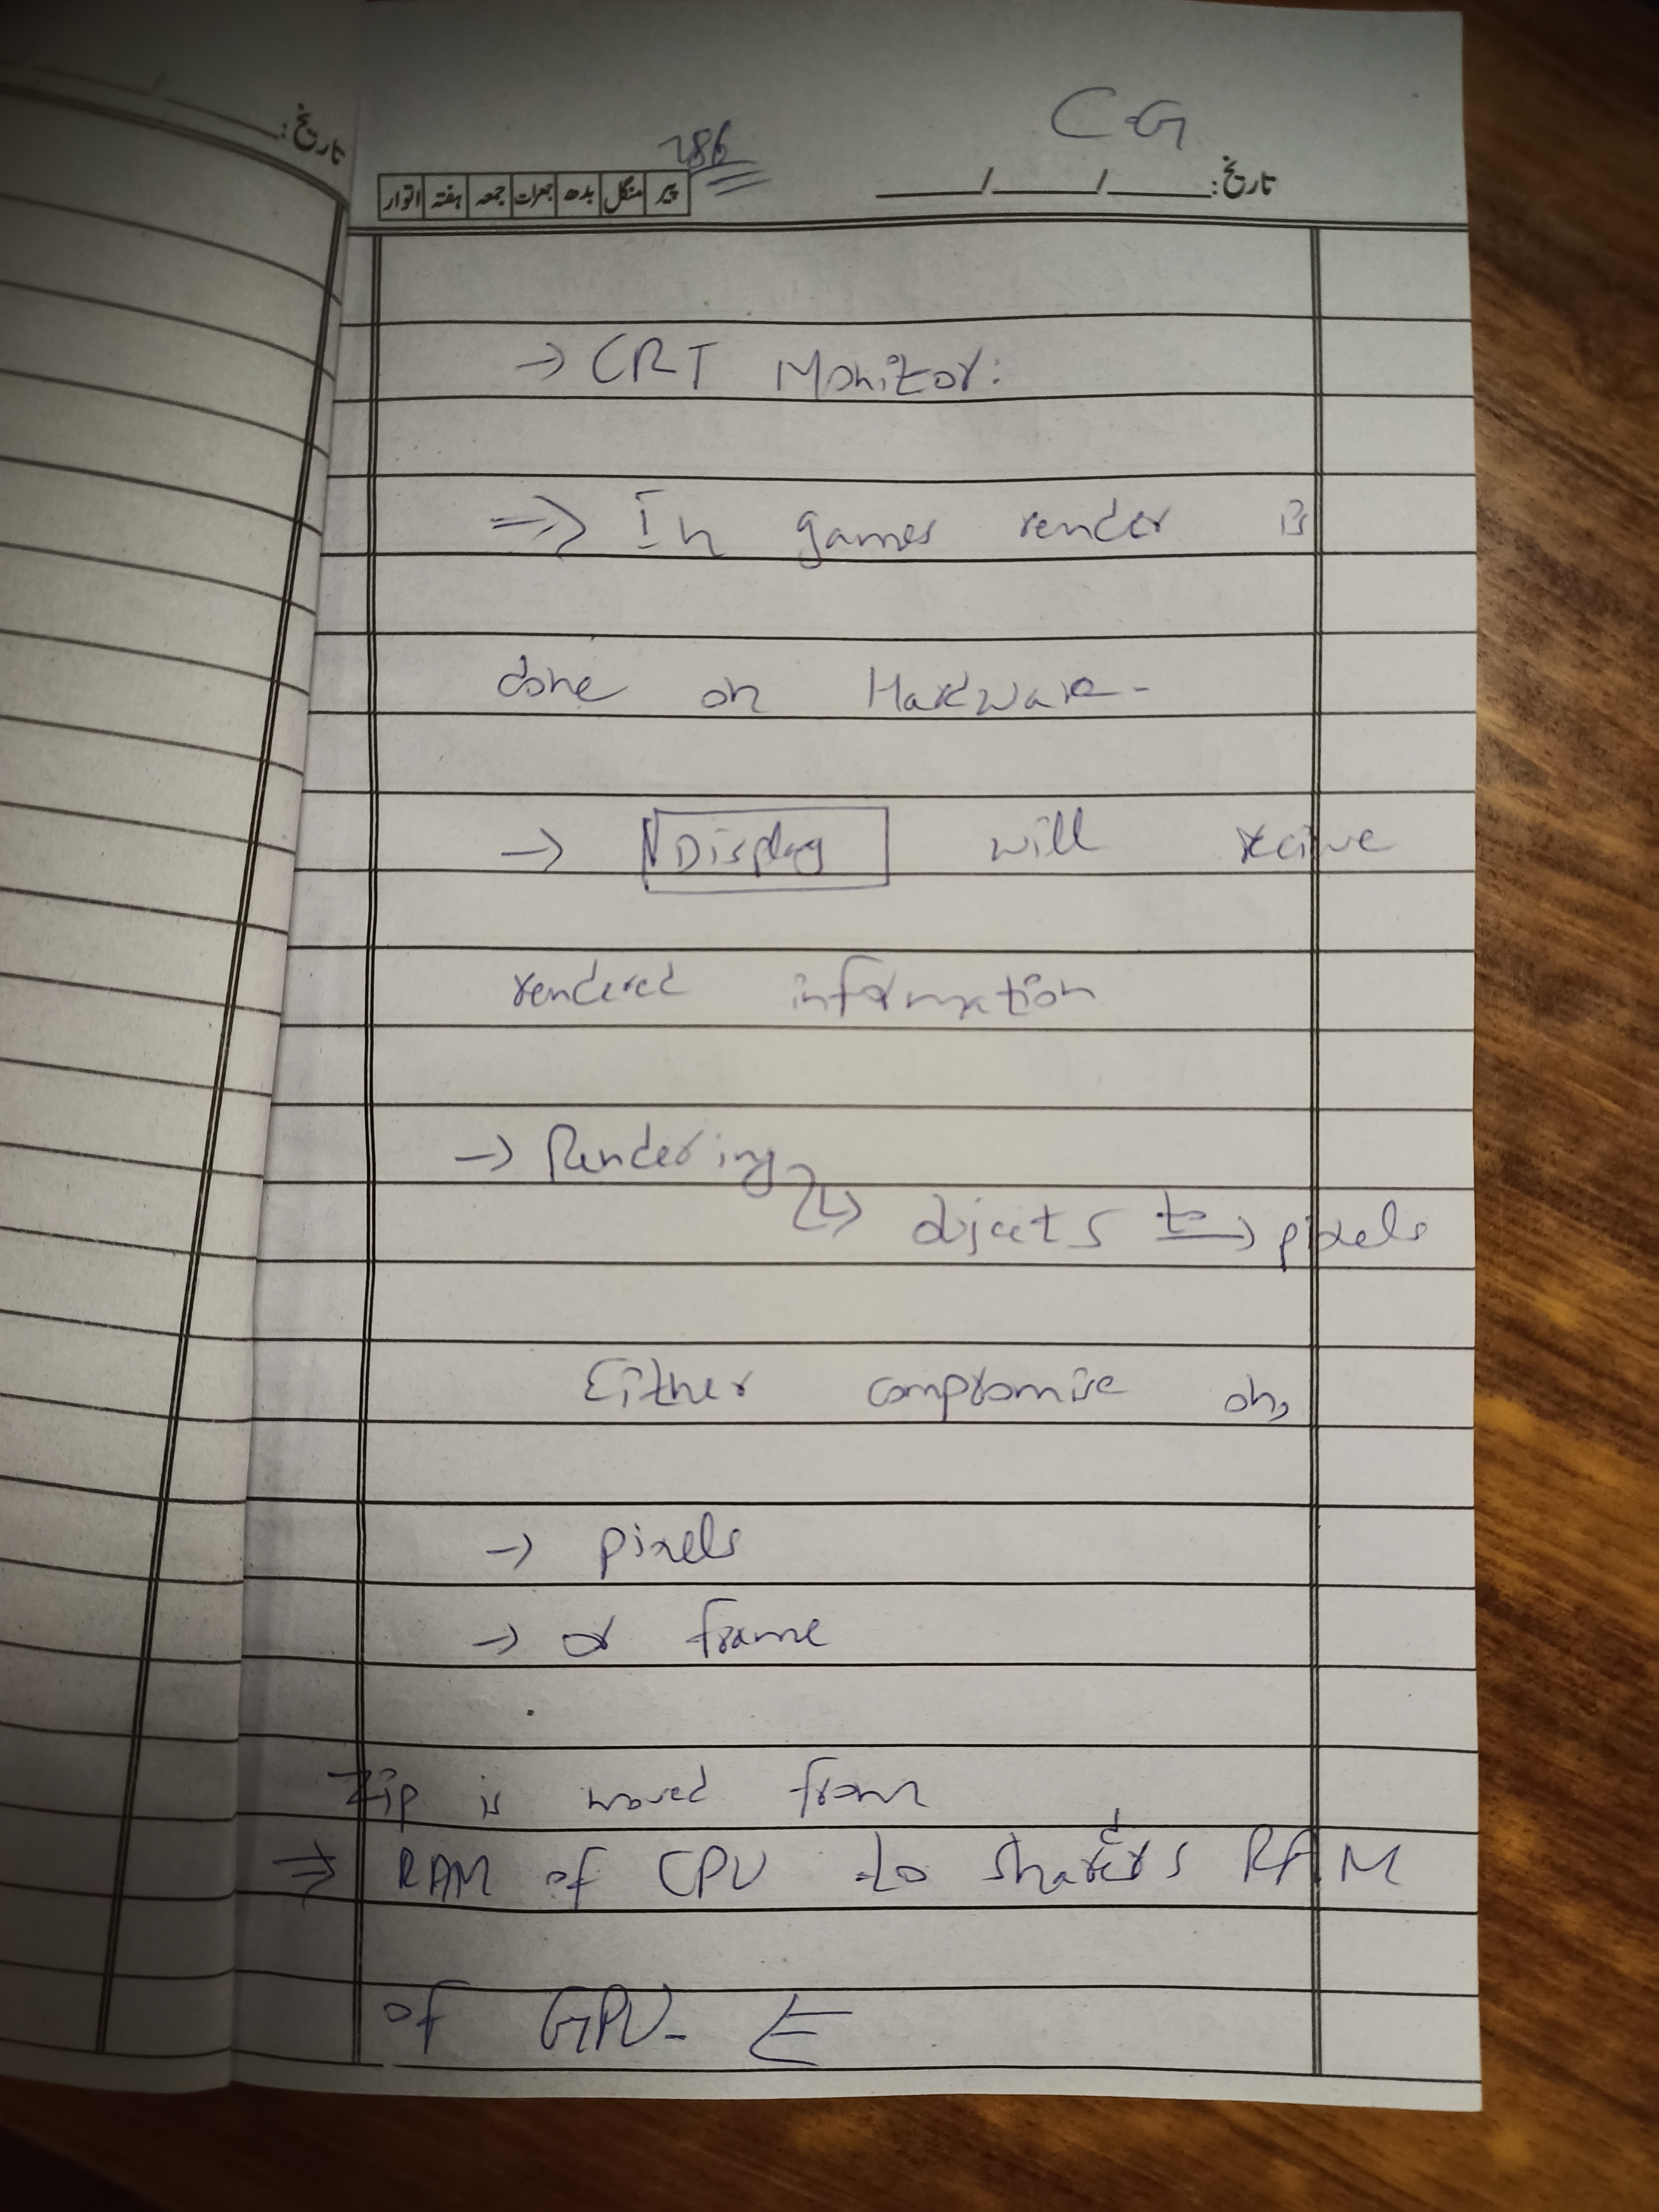 تاریخ:
CG
786
اتوار ہفتہ جمعہ جمعرات بدھ منگل پیر
تاریخ: ___/___/___
→ CRT Monitor:
⇒ In games render is
done on Hardware-
→ Display will recive
rendered information
→ Rendering
↳ objects to→ pixels
Either compromise on,
→ pixels
→ or frame
Zip is moved from
⇒ RAM of CPU to RAM
of GPU-